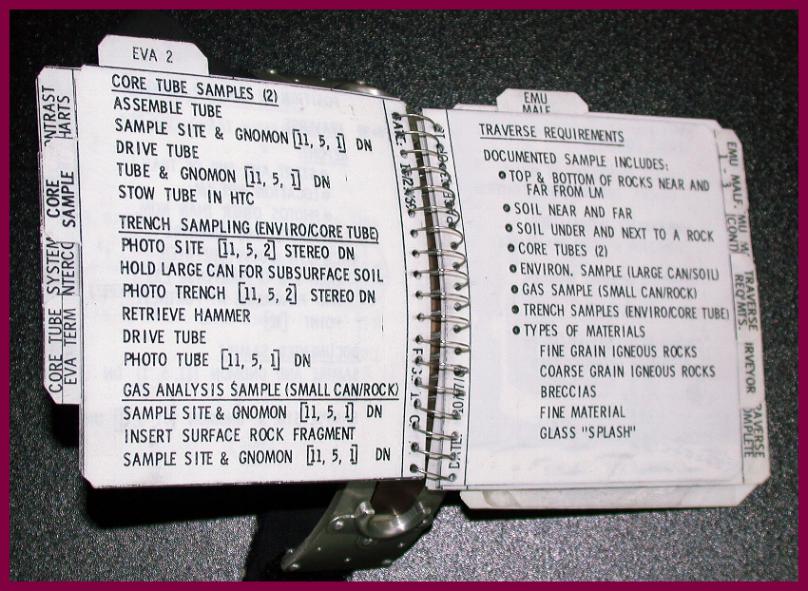 EVA 2
CORE TUBE SAMPLES (2)
ASSEMBLE TUBE
SAMPLE SITE & GNOMON [11, 5, 1] DN
DRIVE TUBE
TUBE & GNOMON [11, 5, 1] DN
STOW TUBE IN HTC
TRENCH SAMPLING (ENVIRO/CORE TUBE)
PHOTO SITE [11, 5, 2] STEREO DN
HOLD LARGE CAN FOR SUBSURFACE SOIL
PHOTO TRENCH [11, 5, 2] STEREO DN
RETRIEVE HAMMER
DRIVE TUBE
PHOTO TUBE [11, 5, 1] DN
GAS ANALYSIS SAMPLE (SMALL CAN/ROCK)
SAMPLE SITE & GNOMON [11, 5, 1] DN
INSERT SURFACE ROCK FRAGMENT
SAMPLE SITE & GNOMON [11, 5, 1] DN
CORE
SAMPLE
CORE TUBE
EVA TERM
EMU
TRAVERSE REQUIREMENTS
DOCUMENTED SAMPLE INCLUDES:
• TOP & BOTTOM OF ROCKS NEAR AND
FAR FROM LM
• SOIL NEAR AND FAR
• SOIL UNDER AND NEXT TO A ROCK
• CORE TUBES (2)
• ENVIRON. SAMPLE (LARGE CAN/SOIL)
• GAS SAMPLE (SMALL CAN/ROCK)
• TRENCH SAMPLES (ENVIRO/CORE TUBE)
• TYPES OF MATERIALS
FINE GRAIN IGNEOUS ROCKS
COARSE GRAIN IGNEOUS ROCKS
BRECCIAS
FINE MATERIAL
GLASS "SPLASH"
EMU MALF.
1 - 3
TRAVERSE
REQMTS.